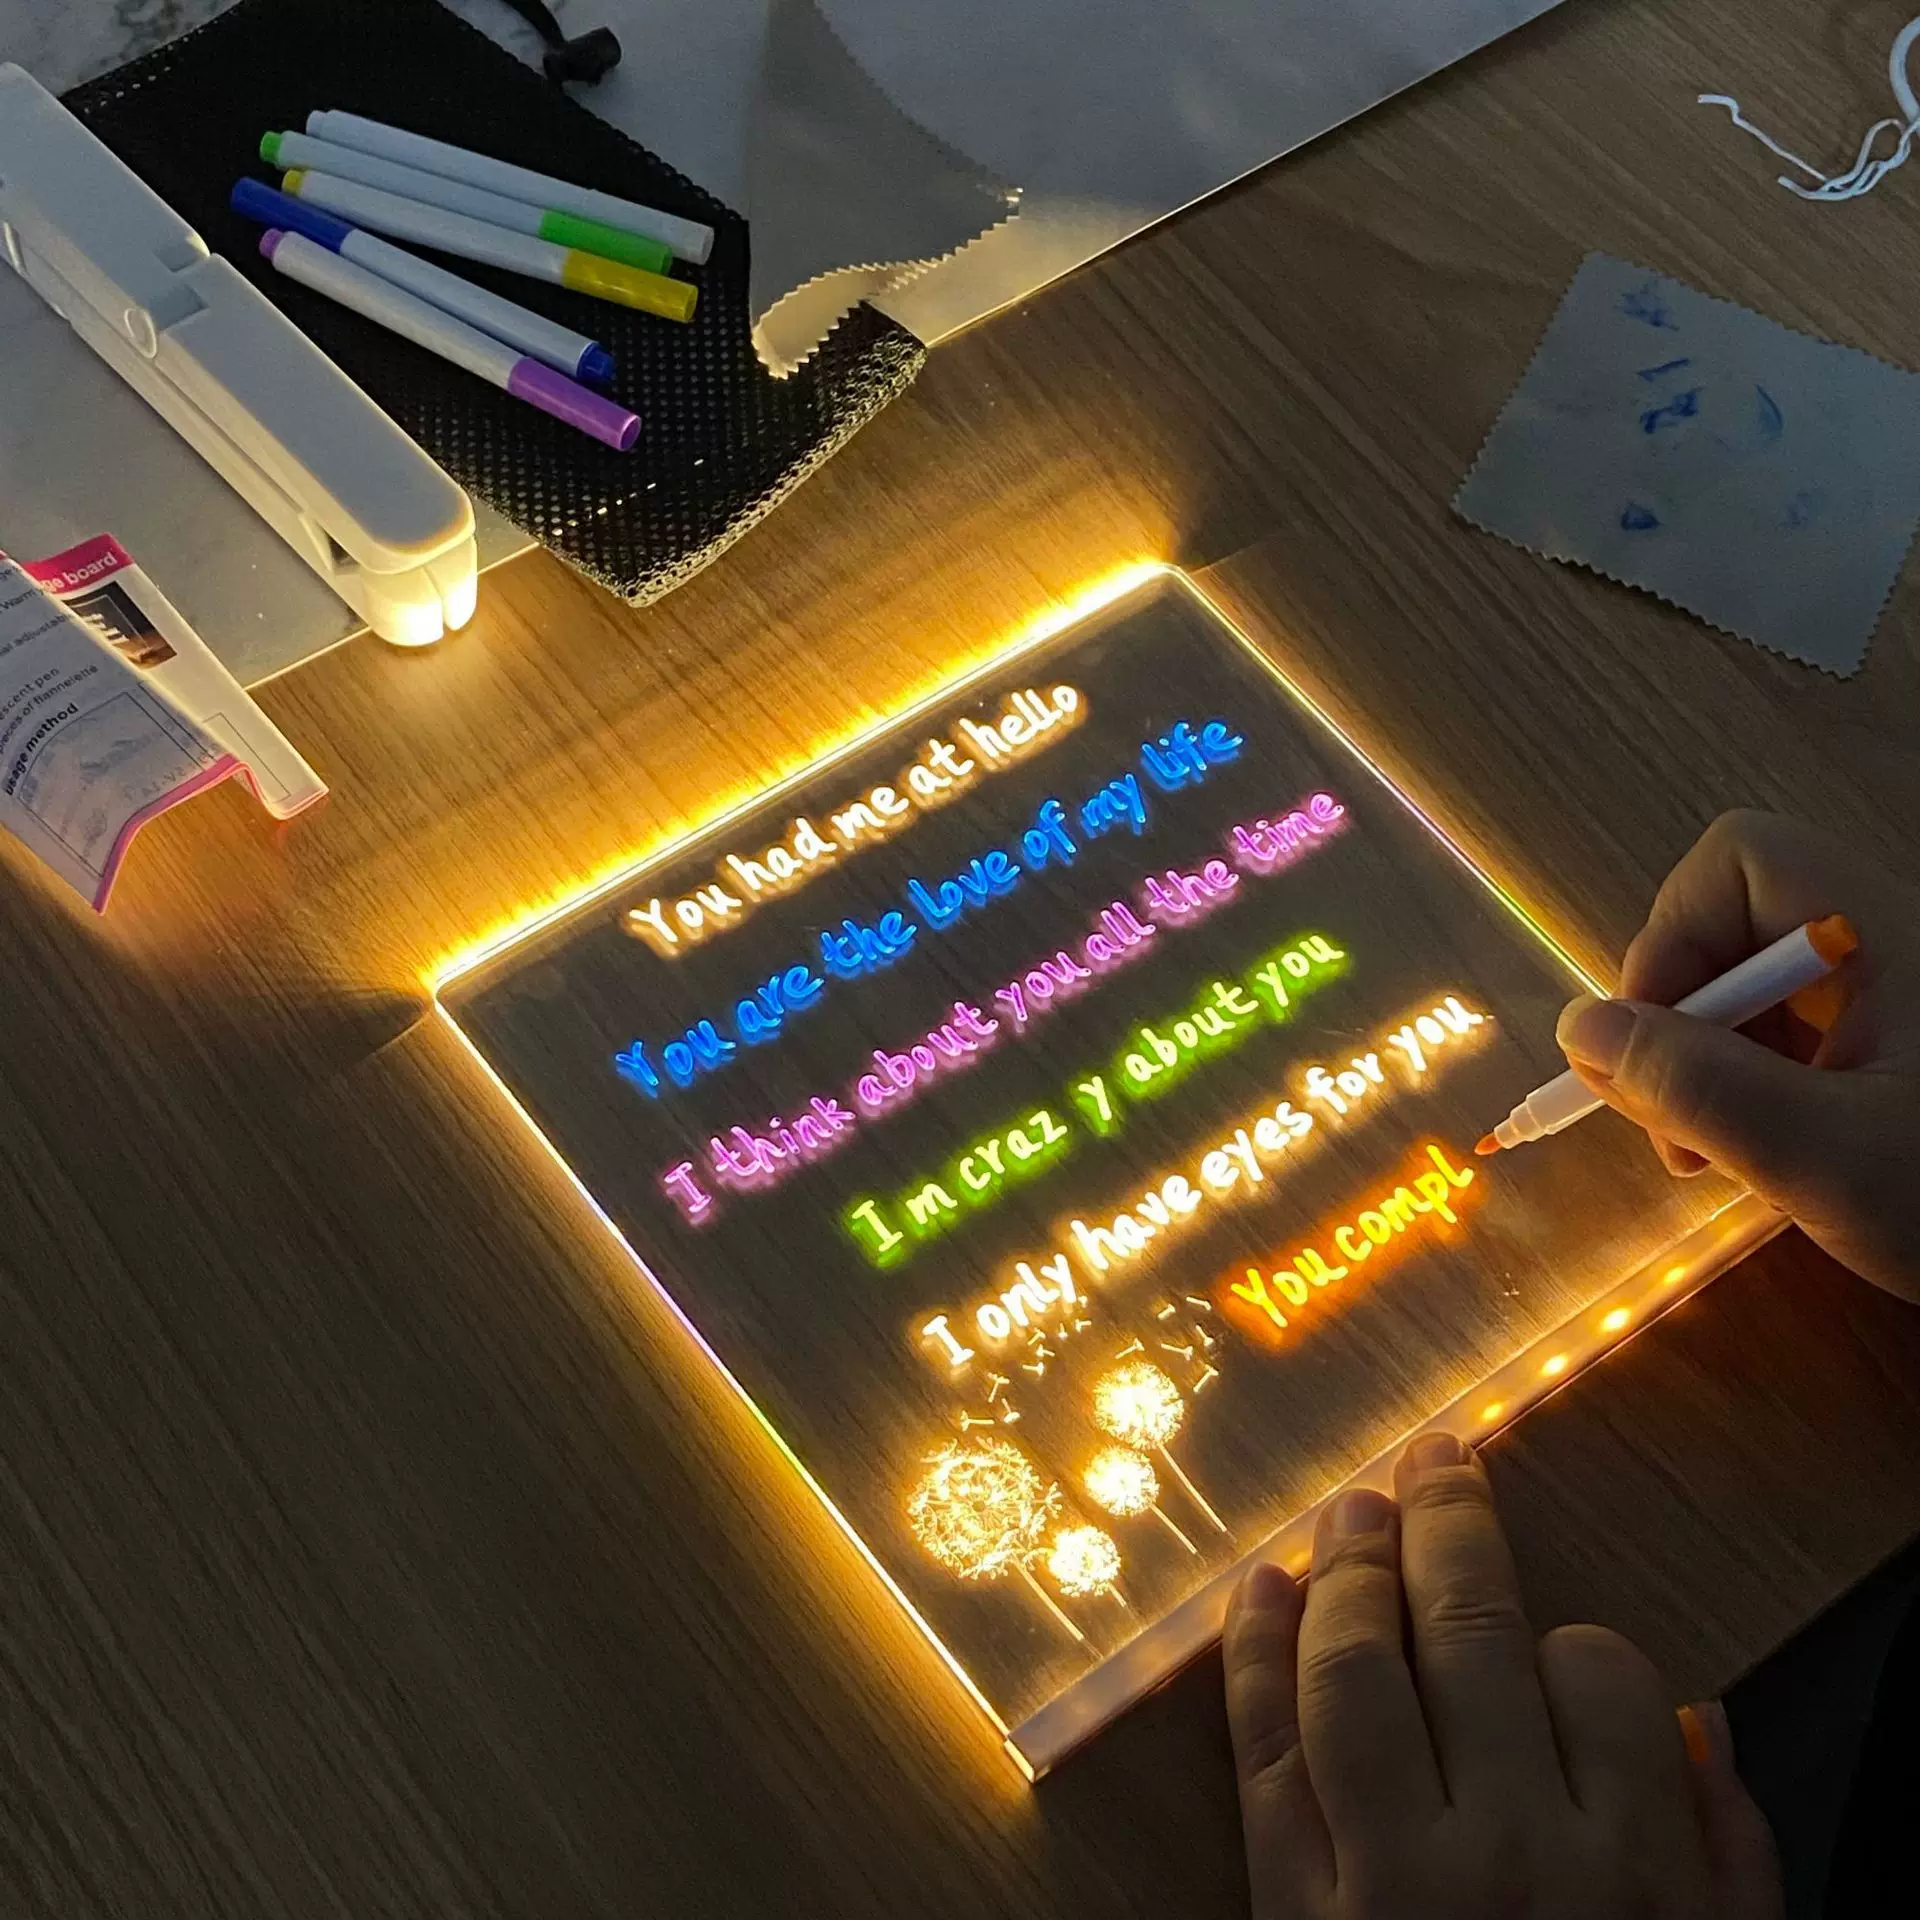 You had me at hello
You are the love of my life
I think about you all the time
I m craz y about you
I only have eyes for you
You compl
ge board
Warm
escent pen
pieces of flannelette
usage method